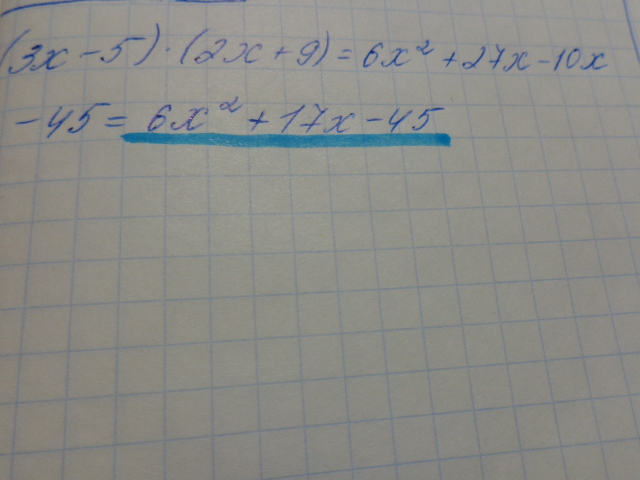 (3x-5)·(2x+9)=6x²+27x-10x
-45=6x²+17x-45